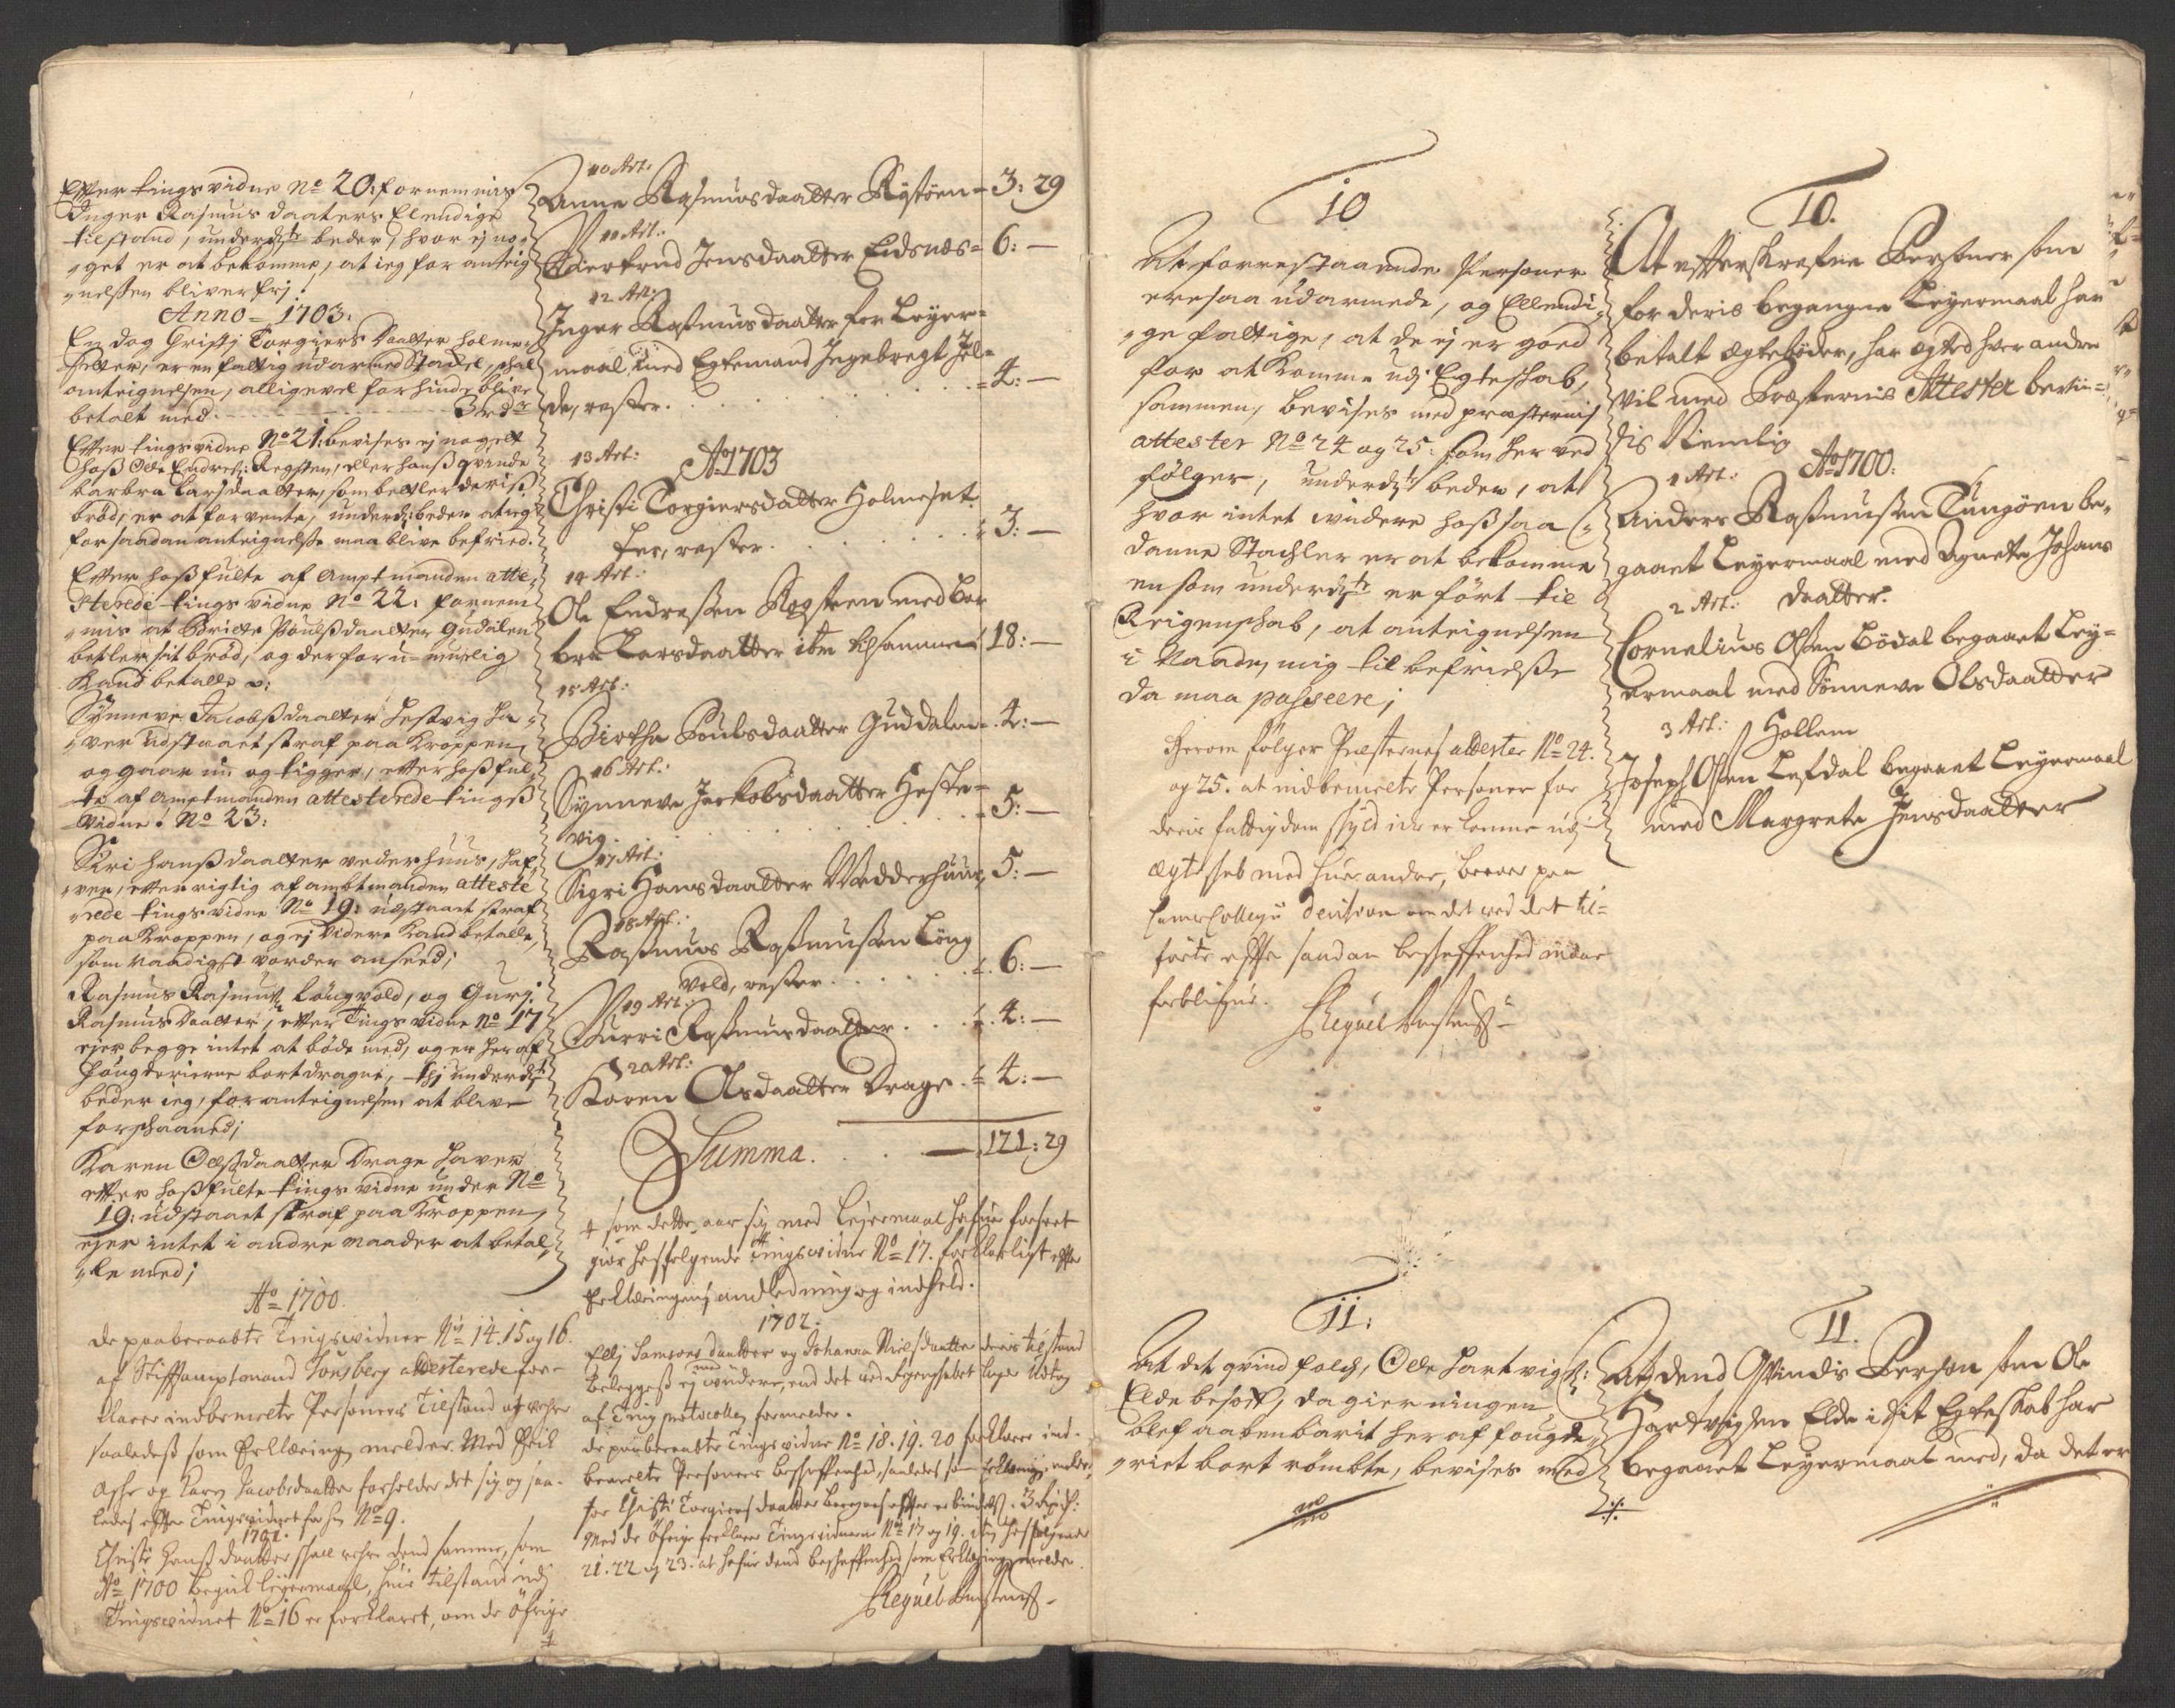 Efter tings vidne No 20: fornemmis
Inger Rasmus daaters Elendige
tilstand, underdste beder, hvor ej no-
get er at bekomme, at ieg for anteig
nelsen bliver frj.
Anno 1703.
En dog Christj Torgiers Daatter Holme-
setter, er en fattig udarmed Stadel, skal
anteignelsen, alligevel for hinde blive
betalt med - - - 3 rdr
Efter tings vidne No 21: bevises ej noget
hoß Olle Endres: Regsten, eller hanß qvinde
barbra Larsdaatter, som betler deriß
brød, er at forvente, underd: beder at ieg
for saadan anteignelse maa blive befried.
Efter hoßfulte af Amptmanden atte-
sterede tings vidne No 22. fornem
mis at Biritte Poulßdaatter Gudalen
betler sit brød, og derfor u-muelig
Kand betalle.
Synneve Jacobßdaatter Hestvig ha-
ver udstaaet straf paa Kroppen,
og gaar nu og tigger, efter hoßful-
te af amptmanden attesterede tingß
Vidne: No 23:
Siri Hanßdaatter vederhuus, haf-
ver, efter rigtig af ambtmanden atteste
rede tings vidne No 19: udstaaet straf
paa Kroppen, og ej videre Kand betalle,
som Naadigst vorder anseed;
Rasmus Rasmuß: Løngvold, og Gurj
Rasmus Daatter, efter Tings vidne No 17
ejer begge intet at bøde med, og er her af
fougderierne bortdragne, thj underdst
beder ieg, for anteignelsen at blive
forskaaned;
Karen Olßdaatter Drage haver
efter hoßfulte tings vidne under No
19: udstaaet straf paa Kroppen,
ejer intet i andre maader at betal
le med;
Ao 1700.
De paaberaabte Tingsvidner No 14. 15 og 16.
af Stiftamptmand attesterede for-
klarer indbemelte Personers Tilstand at vere
saaledeß som Erklæringen melder. Med
og Karen Jacobsdaatter forholder det sig og saa-
ledes efter Tingsvidnet No 9.
1702.
Christi Hanß daatter skall vere dend samme, som
Ao 1700 begik leyermaal, huis tilstand udj
Tingsvidnet No 16 er forklaret, om de øfrige
+
10 Art:
Anne Rasmusdaatter Rystøen - 3: 29
11 Art:
Giertrud Jensdaatter Eidsnæs - 6: —
12 Art:
Inger Rasmusdaatter for Leyer-
maal med Egtemand Ingebregt Jel-
de, rester . . . 4: —
Ao 1703
13 Art:
Christi Torgiersdatter Holmeset
ter, rester . . . 3: —
14 Art:
Ole Endresen Regsteen med Bar
bra Larsdaatter ibm tilsammen 18: —
15 Art:
Birthe Poulsdaatter Guddalen - 4: —
16 Art:
Synneve Jackobsdaatter Heste-
vig . . . 5: —
17 Art:
Sigri Hansdaatter Vedderhuus, 5: —
18 Art:
Rasmus Rasmusen Løng
vold, rester . . . 6: —
19 Art:
Gurri Rasmusdaatter . . . 4: —
20 Art:
Karen Olsdaatter Drage . 4: —
Summa . . . — 121: 29
+ som dette aar sig med Leyermaal hafver forseet
giør hosfølgende Tingsvidne No 17. forklarligt efter
Erklæringens andledning og indhold.
1702.
Ellj Samsons daatter og Johanna Nielsdaatter deris tilstand
beleggeß ej med videre, end det ved Regenskabet lagde Udtog
af Tingprotocollen formelder.
De paaberaabte Tingsvidne No 18. 19. 20 forklarer ind-
bemelte Personers beskaffenhed, saaledes som Erklæringen melder,
for Christi Torgiers daatter 3 Rdr:
Med de øfrige forklarer Tingsvidnerne No 17 og 19. hosfølgende
21. 22 og 23. at hafve dend beskaffenhed som Erklæringen melder.

10
At forrestaaende Personer
ere saa udarmede, og Ellendi-
ge fattige, at de ej er goed
for at Komme udj Egteskab,
sammen, bevises med presternis
attester No 24 og 25: som her ved
følger, underdst beder, at
hvor intet videre hoß saa-
danne Stachler er at bekomme
en som underdste er ført til
Reigenskab, at anteignelsen
i Naade, mig til befrielse
da maa passere;
Herom følger Presternes attester No 24.
og 25. at indbemelte Personer for
deris fattigdom skyld icke er komme udj
ægteskab med huer andre, beroer paa
CammerCollegii decision om det ved det til-
førte efter saadan beskaffenhed
forblifve.
10.
At efterskrefne Personer som
for deris begangne Leyermaal har
betalt ægtebøder, har ægted hver andre
vil med Presternis Attester bevii-
sis Nemlig
Ao 1700:
1 Art:
Anders Rasmusen Tungøen be-
gaaet Leyermaal med Agnete Johans
daatter.
2 Art:
Cornelius Olsen Bødal begaaet Ley-
ermaal med Sønneve Olsdaatter
Hollem
3 Art:
Joseph Olsen Lefdal begaaet Leyermaal
med Margrete Jensdaatter
11:
At det qvindfolch, Olle Hartvigs:
Elde besof, da gierningen
blef aabenbarit her af fougde-
riet bort rømbte, bevises med
11.
At dend Qvindis Person som Ole
Hartvigsen Elde i sit Egteskab har
begaaet Leyermaal med, da det er